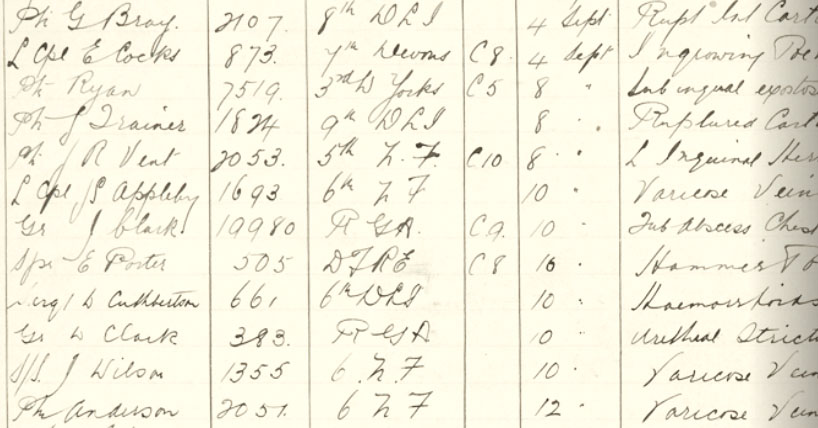 Pte G Bray. 2107. 8th DLI 4 Sept Rupt Int Cart
L Cpl E Cocks 873. 7th Devons C8. 4 Sept Ingrowing Toe
Pte Ryan 7519. 3rd W Yorks C5 8 " Sub ungual exostos
Pte J Trainer 1824 9th DLI 8 " Ruptured Cart
Pte J R Vent 2053. 5th N.F. C10 8 " L Inguinal Her
L Cpl J S Appleby 1693 6th N F 10 " Varicose Vein
Gr J Clark 19980 RGA. C9. 10 " Abscess Chest
Spr E Porter 505 DFRE C8 10 " Hammer To
Sergt D Cuthbertson 661 6th DLI 10 " Haemorrhoids
Gr D Clark 383. RGA 10 " Uretheal Strict
J Wilson 1355 6. N.F 10 " Varicose Vein
Pte Anderson 2051. 6 N F 12 " Varicose Vein